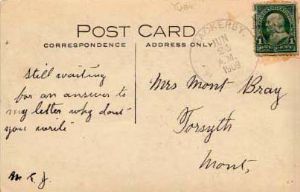 POST CARD
CORRESPONDENCE
ADDRESS ONLY.
OCKERBY,
A.M.
1909
1
Still waiting
for an answer to
my letter why don't
you write
M. K. J.
Mrs Mont Bray
Forsyth
Mont.